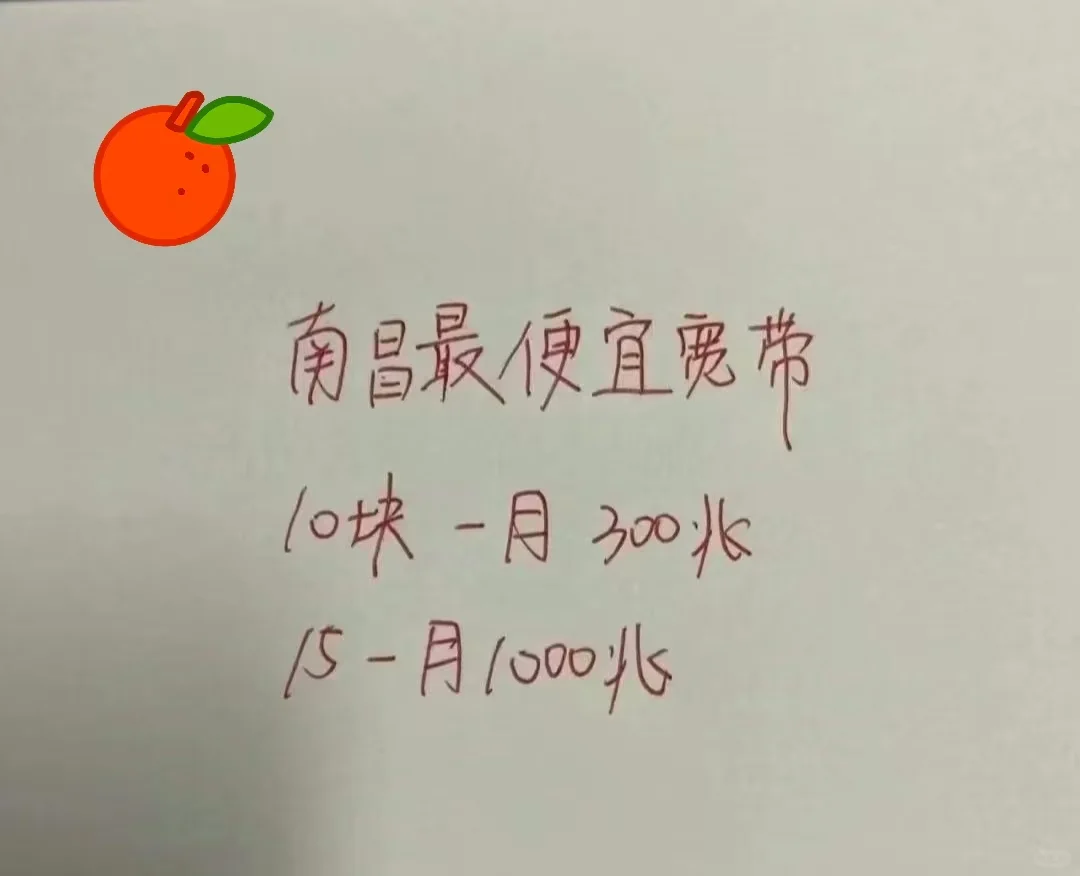 南昌最便宜宽带
10块一月 300兆
15一月1000兆